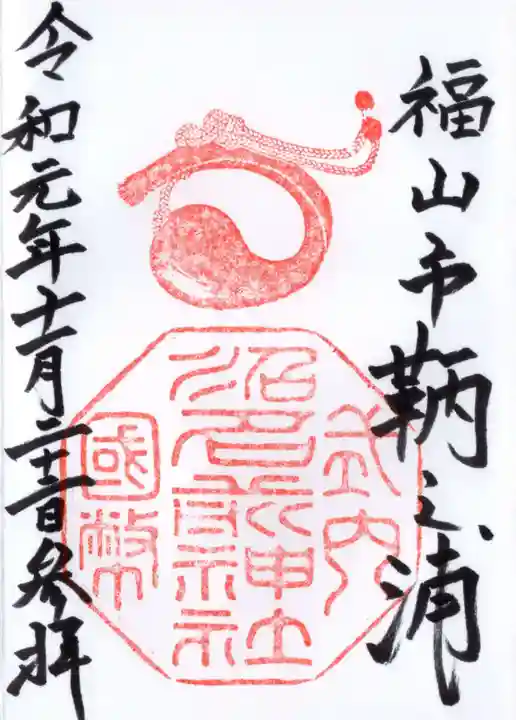 福山市鞆之浦
式内
沼名前神社
國幣
令和元年十一月二十三日参拝